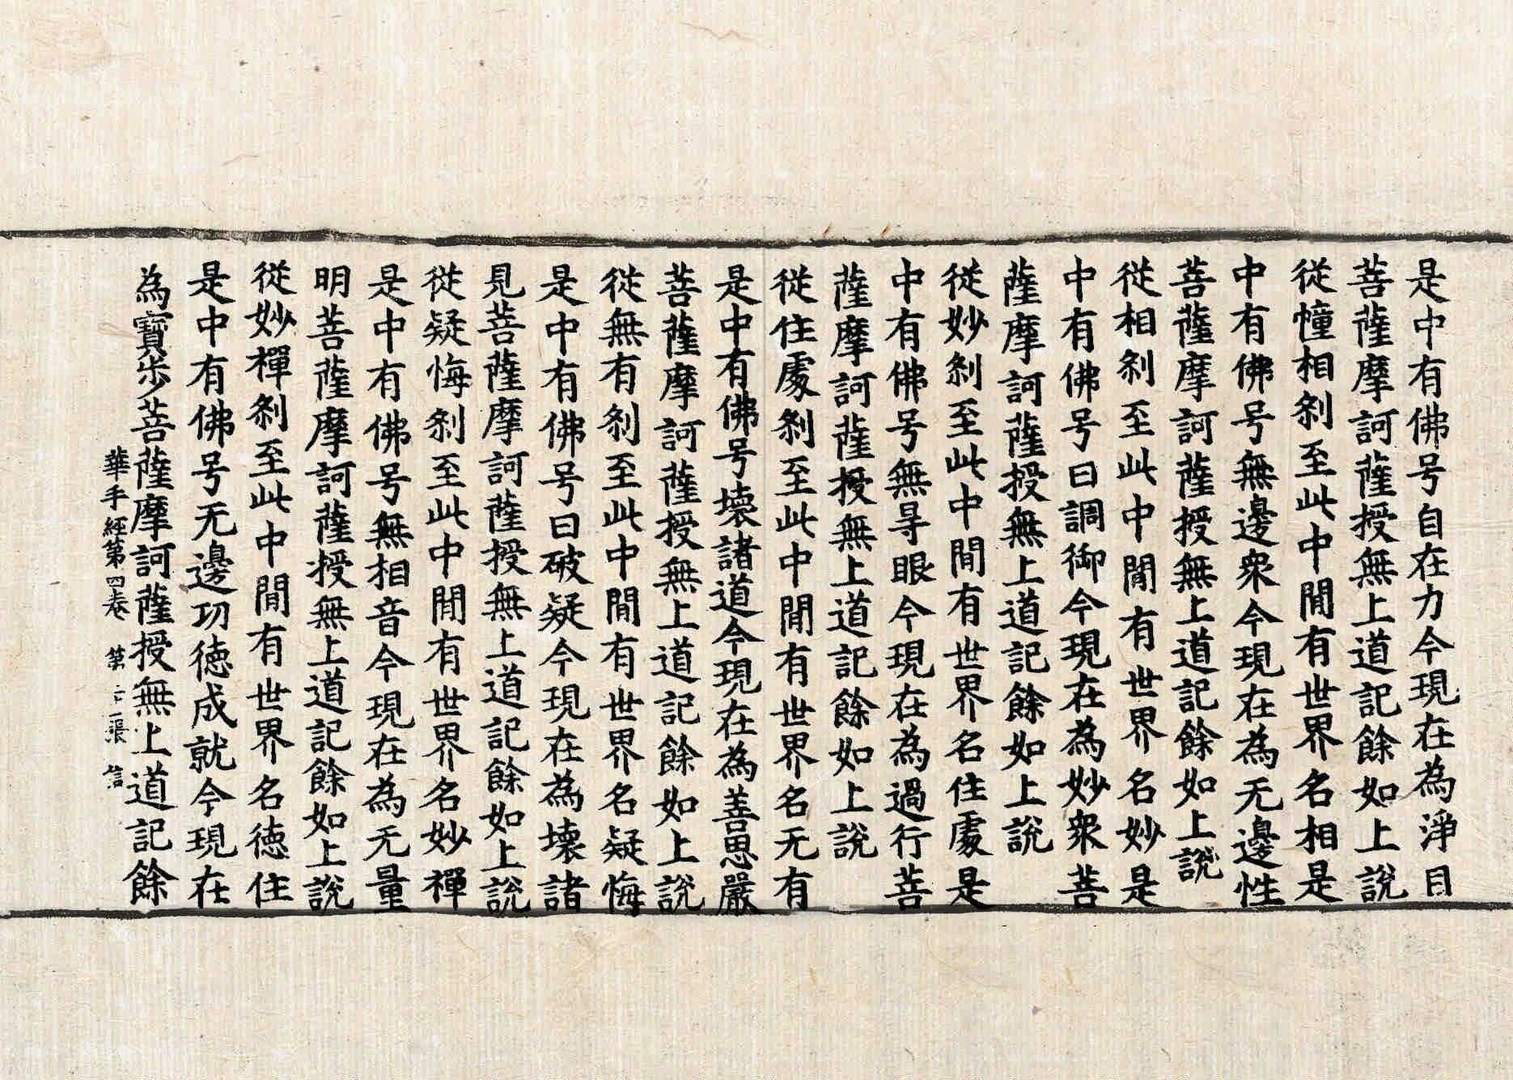 是中有佛号自在力今現在為淨目
菩薩摩訶薩授無上道記餘如上說
從憧相剎至此中閒有世界名相是
中有佛号無邊眾今現在為无邊性
菩薩摩訶薩授無上道記餘如上說
從相剎至此中閒有世界名妙是
中有佛号曰調御今現在為妙眾菩
薩摩訶薩授無上道記餘如上說
從妙剎至此中閒有世界名住處是
中有佛号無㝵眼今現在為過行菩
薩摩訶薩授無上道記餘如上說
從住處剎至此中閒有世界名无有
是中有佛号壞諸道今現在為善思嚴
菩薩摩訶薩授無上道記餘如上說
從無有剎至此中閒有世界名疑悔
是中有佛号曰破疑今現在為壞諸
見菩薩摩訶薩授無上道記餘如上說
從疑悔剎至此中閒有世界名妙禪
是中有佛号無相音今現在為无量
明菩薩摩訶薩授無上道記餘如上說
從妙禪剎至此中閒有世界名德住
是中有佛号无邊功德成就今現在
為寶步菩薩摩訶薩授無上道記餘
華手經第四卷 第 張 信